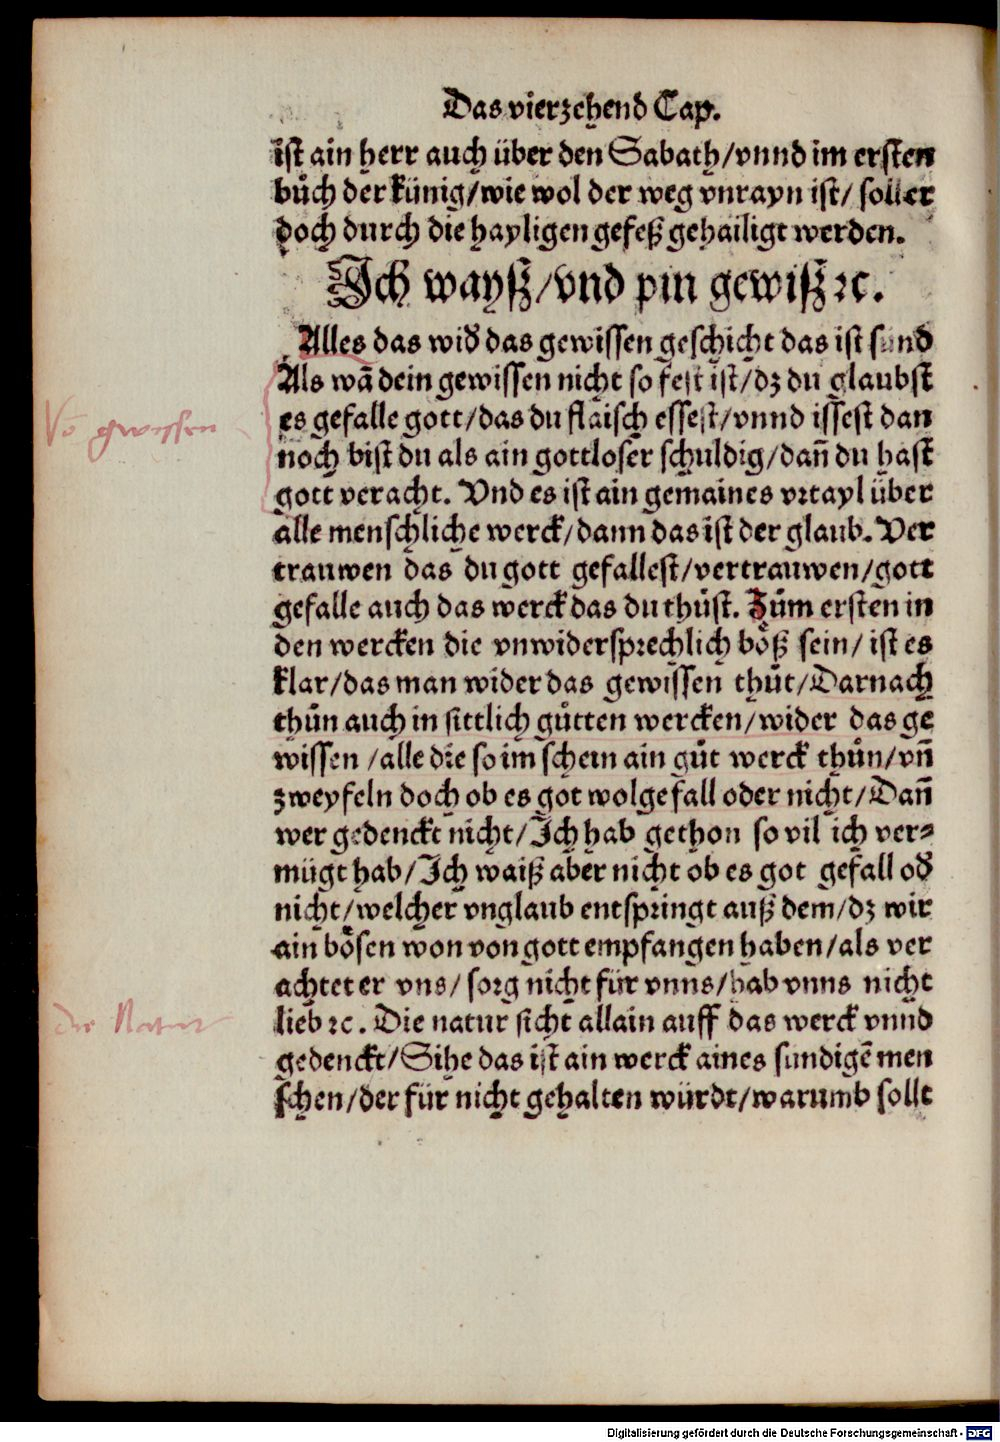 Das vierzehend Cap.
ist ain herr auch über den Sabath/vnnd im ersten
bůch der künig/wie wol der weg vnrayn ist/ soll er
doch durch die hayligen gefeß gehailigt werden.
Ich waysz/vnd pin gewisz ꝛc.
Alles das wid̄ das gewissen geschicht das ist sünd
Als wā dein gewissen nicht so fest ist/dz du glaubst
Vō gwyssen
es gefalle gott/das du flaisch essest/vnnd issest dan
noch bist du als ain gottloser schuldig/dañ du hast
gott veracht. Vnd es ist ain gemaines vꝛtayl über
alle menschliche werck/dann das ist der glaub. Ver
trauwen das du gott gefallest/vertrauwen/gott
gefalle auch das werck das du thůst. Zům ersten in
den wercken die vnwidersprechlich böß sein/ ist es
klar/das man wider das gewissen thůt/Darnach
thůn auch in sittlich gůtten wercken/wider das ge
wissen /alle die so im schein ain gůt werck thůn/vñ
zweyfeln doch ob es got wolgefall oder nicht/Dañ
wer gedenckt nicht/Ich hab gethon so vil ich ver⸗
mügt hab/Ich waiß aber nicht ob es got gefall od̄
nicht/welcher vnglaub entspringt auß dem/dz wir
ain bösen won von gott empfangen haben/als ver
achtet er vns/ soꝛg nicht für vnns/hab vnns nicht
die Natur
lieb ꝛc. Die natur sicht allain auff das werck vnnd
gedenckt/Sihe das ist ain werck aines sündigē men
schen/der für nicht gehalten würdt/warumb sollt
Digitalisierung gefördert durch die Deutsche Forschungsgemeinschaft - DFG